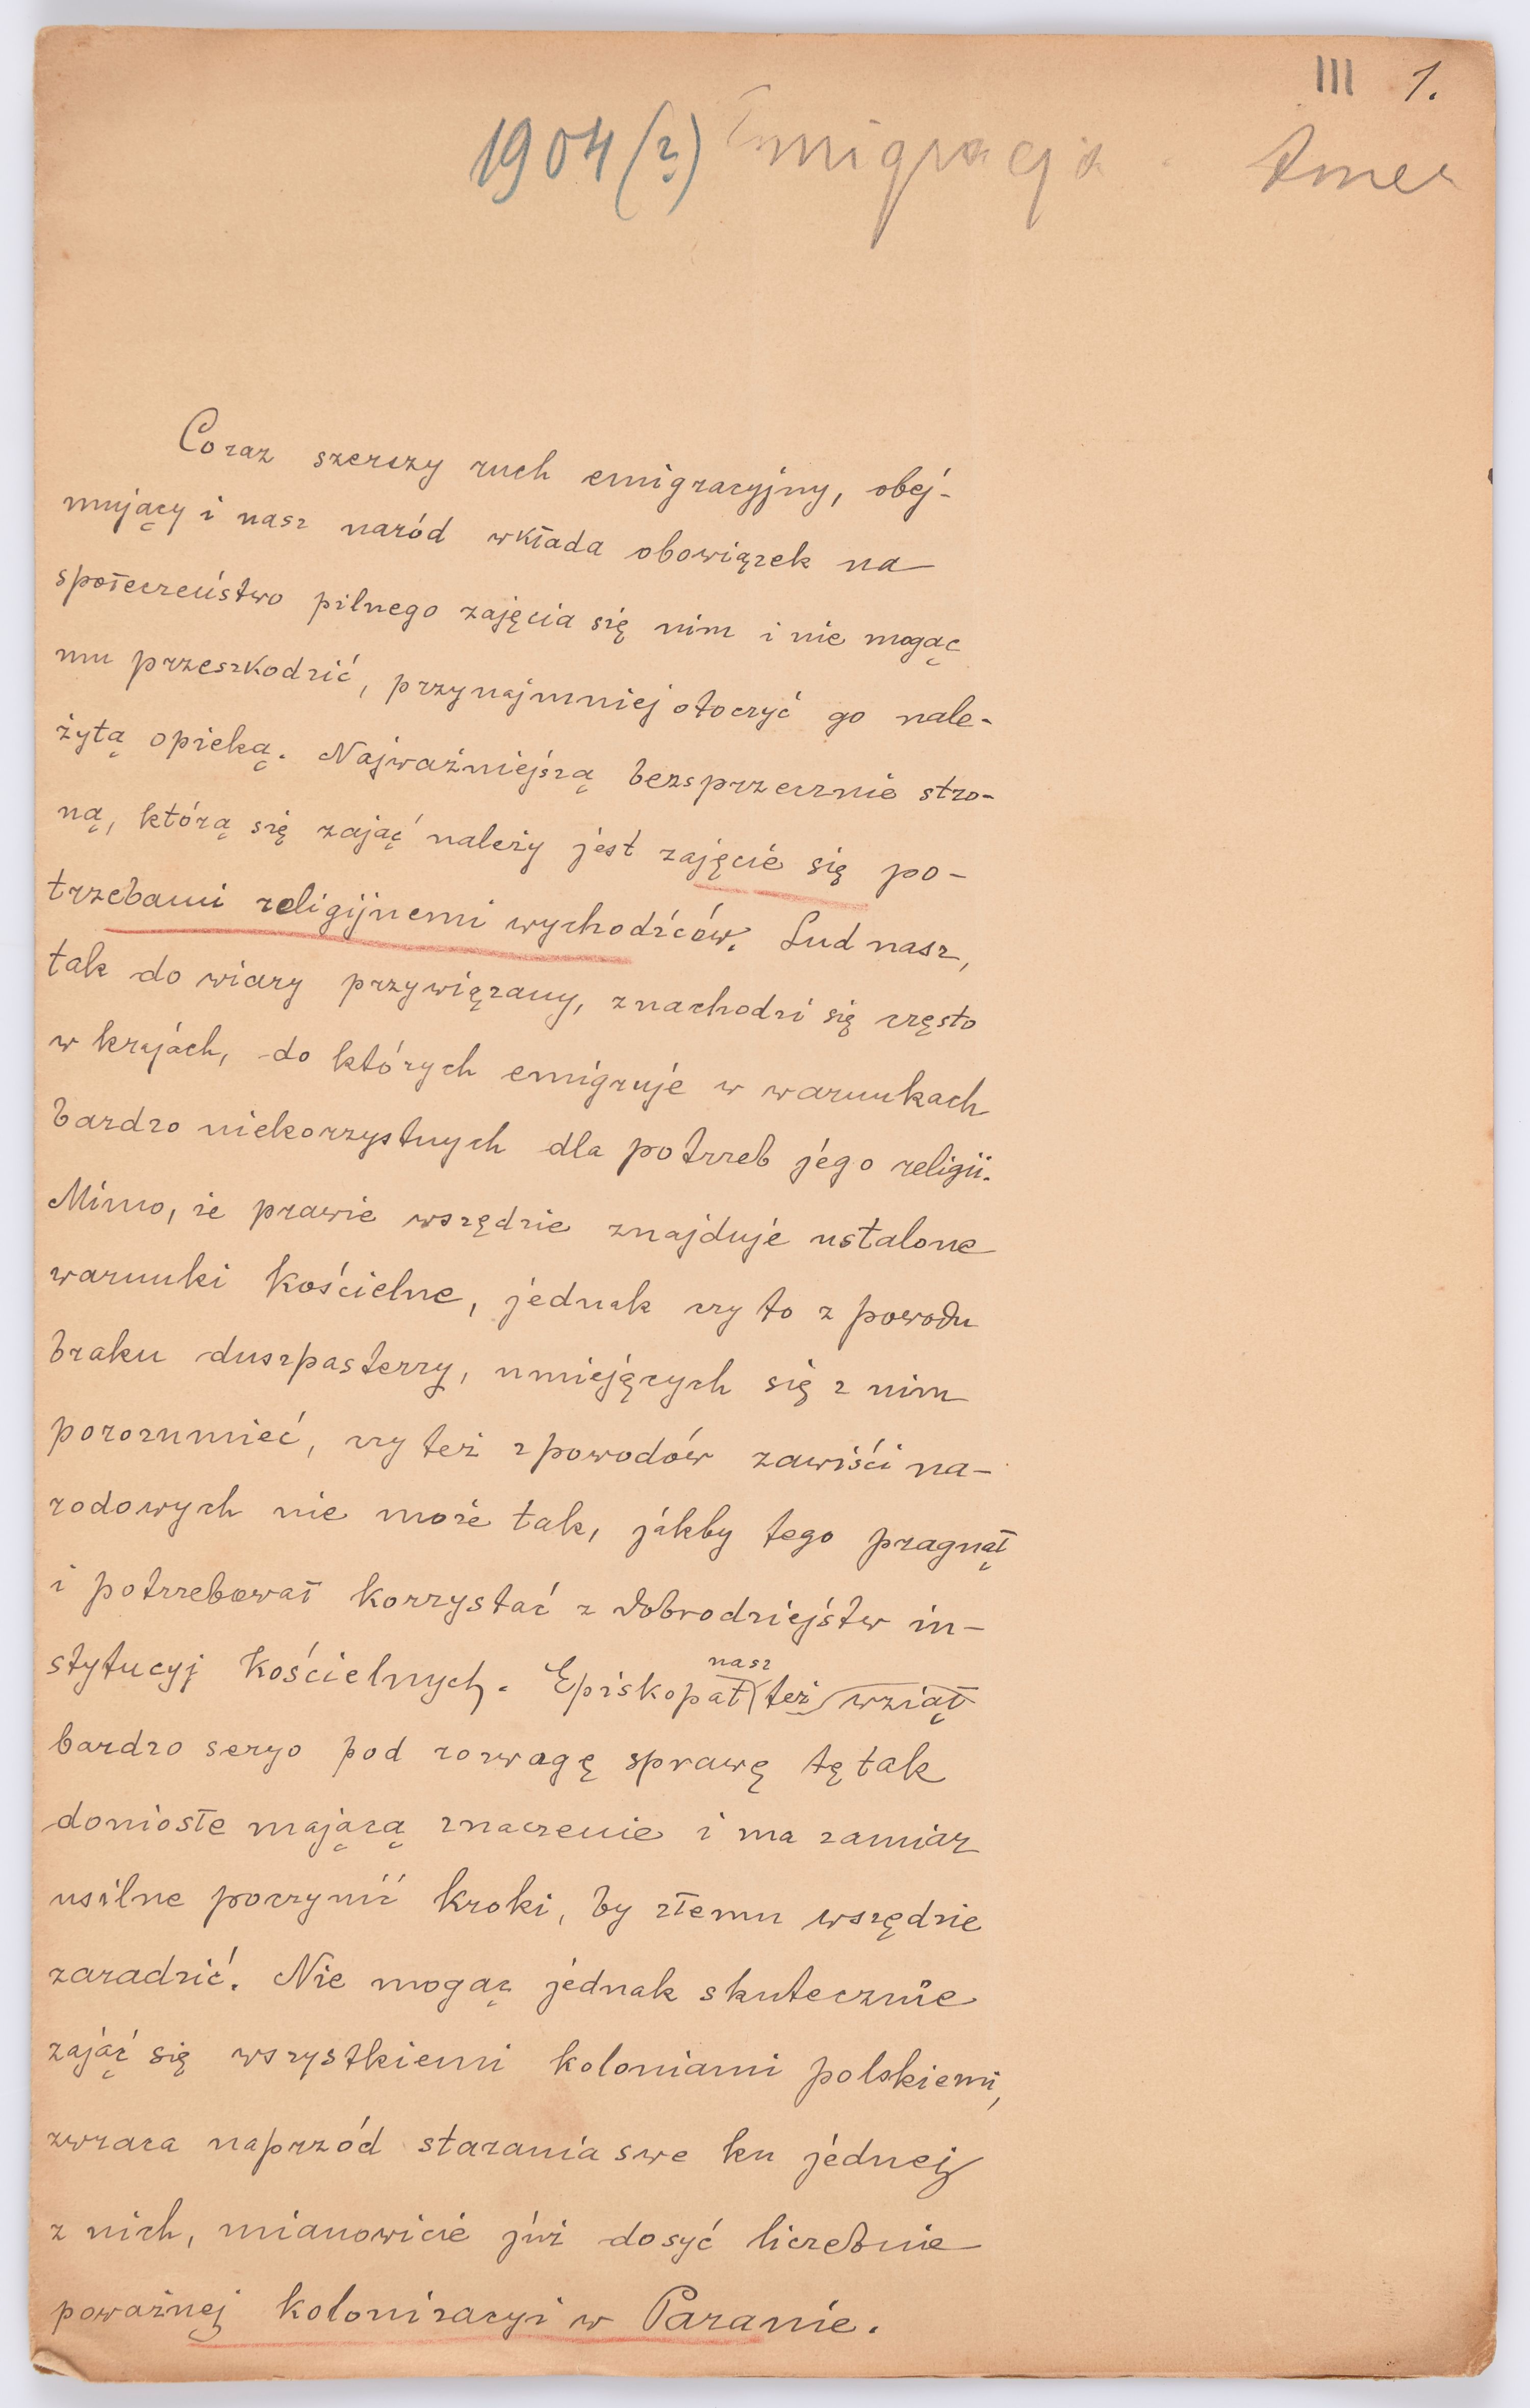 III 1.
1904(?) Emigracja Amer
Coraz szerszy ruch emigracyjny, obej-
mujący i nasz naród wkłada obowiązek na
społeczeństwo pilnego zajęcia się nim i nie mogąc
mu przeszkodzić, przynajmniej otoczyć go nale-
żytą opieką. Najważniejszą bezsprzecznie stro-
ną, którą się zająć należy jest zajęcie się po-
trzebami religijnemi wychodźców. Lud nasz,
tak do wiary przywiązany, znachodzi się często
w krajach, do których emigruje w warunkach
bardzo niekorzystnych dla potrzeb jego religii.
Mimo, że prawie wszędzie znajduje ustalone
warunki kościelne, jednak czy to z powodu
braku duszpasterzy, umiejących się z nim
porozumieć, czy też z powodów zawiści na-
rodowych nie może tak, jakby tego pragnął
i potrzebował korzystać z dobrodziejstw in-
stytucyj kościelnych. Episkopat nasz też wziął
bardzo seryo pod rozwagę sprawę tę tak
doniosłe mającą znaczenie i ma zamiar
usilne poczynić kroki, by złemu wszędzie
zaradzić. Nie mogąc jednak skutecznie
zająć się wszystkiemi koloniami polskiemi,
zwraca naprzód starania swe ku jednej
z nich, mianowicie już dosyć liczebnie
poważnej kolonizacyi w Paranie.